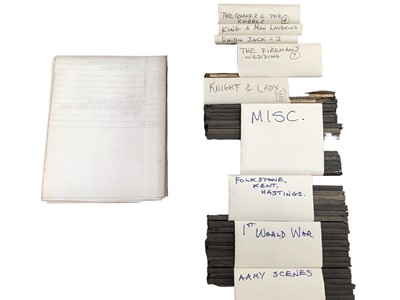 THE QUAKER & THE
ROBBER
KING & MAN LAUGHING
UNION JACK - 2
THE FIREMANS
WEDDING 7
KNIGHT & LADY
MISC.
FOLKSTONE,
KENT,
HASTINGS.
1ST WORLD WAR
ARMY SCENES